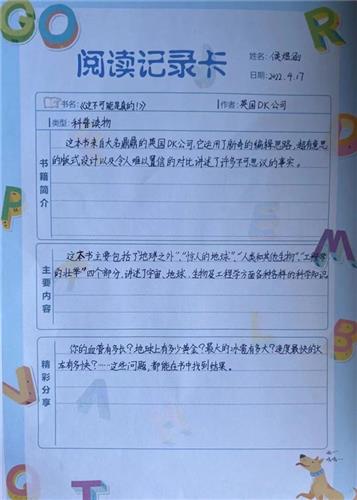 GO
R
阅读记录卡
姓名:侯煜涵
日期:2022.4.17
书名:《这不可能是真的!》 作者:英国DK公司
类型:科普读物
书籍简介
这本书来自大名鼎鼎的英国DK公司,它运用了新奇的编辑思路,超有意思
的版式设计以及令人难以置信的对比讲述了许多不可思议的事实。
主要内容
这本书主要包括了“地球之外”,“惊人的地球”,“人类和其他生物”,“工程学
的壮举”四个部分,讲述了宇宙、地球、生物及工程学方面各种各样的科学知识
精彩分享
你的血管有多长?地球上有多少黄金?最大的冰雹有多大?速度最快的
本有多快?……这些问题,都能在书中找到结果。